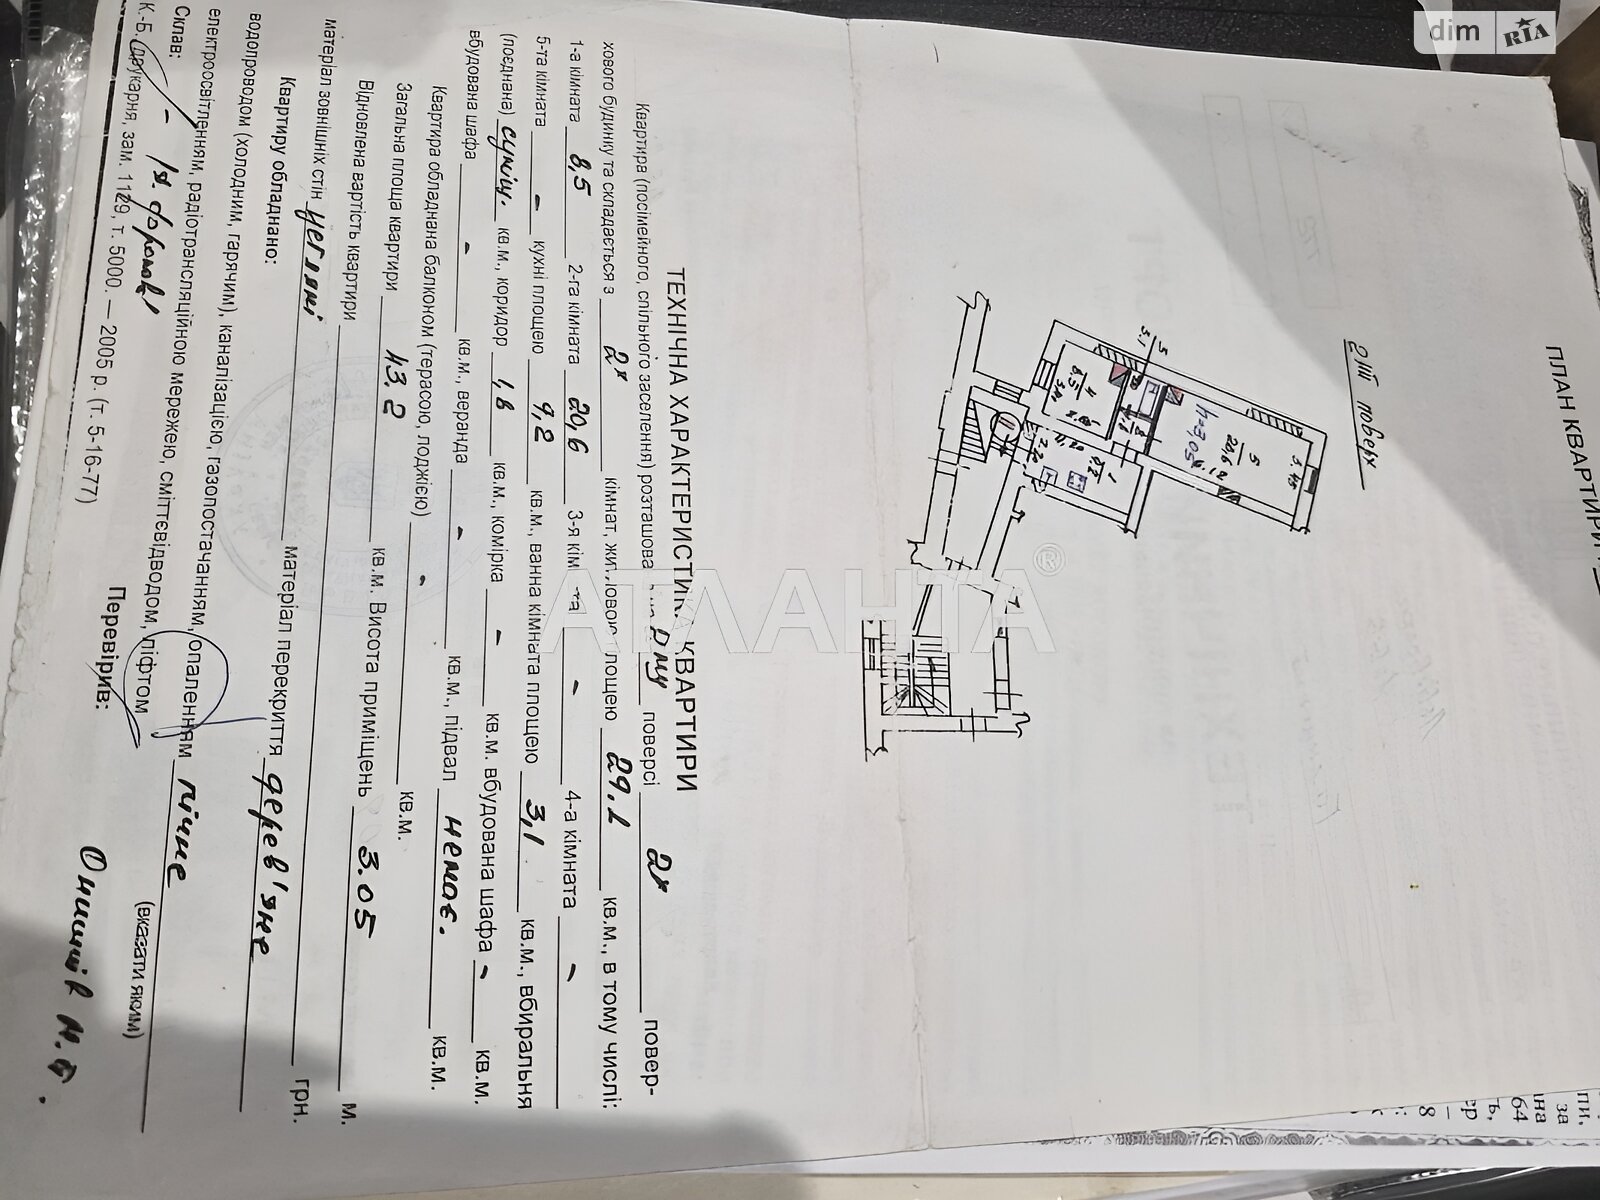 dim RIA
ПЛАН КВАРТИРИ
2й поверх
5
20,6
3.45
h=3,05
4
8.5
5
3.1
1
9.2
2.20
АТЛАНТА ®
ТЕХНІЧНА ХАРАКТЕРИСТИКА КВАРТИРИ
Квартира (посімейного, спільного заселення) розташова на поверсі 2х повер-
хового будинку та складається з 2х кімнат, житловою площею 29.1 кв.м., в тому числі:
1-а кімната 8,5 2-га кімната 20,6 3-я кімната - 4-а кімната -
5-та кімната - кухні площею 9,2 кв.м., ванна кімната площею 3,1 кв.м., вбиральня
(поєднана) суміщ. кв.м., коридор 1,8 кв.м., комірка - кв.м. вбудована шафа - кв.м.
вбудована шафа - кв.м., веранда - кв.м., підвал немає. кв.м.
Квартира обладнана балконом (терасою, лоджією) - кв.м.
Загальна площа квартири 43.2 кв.м. Висота приміщень 3.05 м.
Відновлена вартість квартири грн.
матеріал зовнішніх стін цегляні матеріал перекриття дерев'яне
Квартиру обладнано:
водопроводом (холодним, гарячим), каналізацією, газопостачанням, опаленням пічне
(вказати яким)
електроосвітленням, радіотрансляційною мережею, сміттєвідводом, ліфтом
Склав: Перевірив:
К.-Б. друкарня, зам. 1129, т. 5000. — 2005 р. (т. 5-16-77)